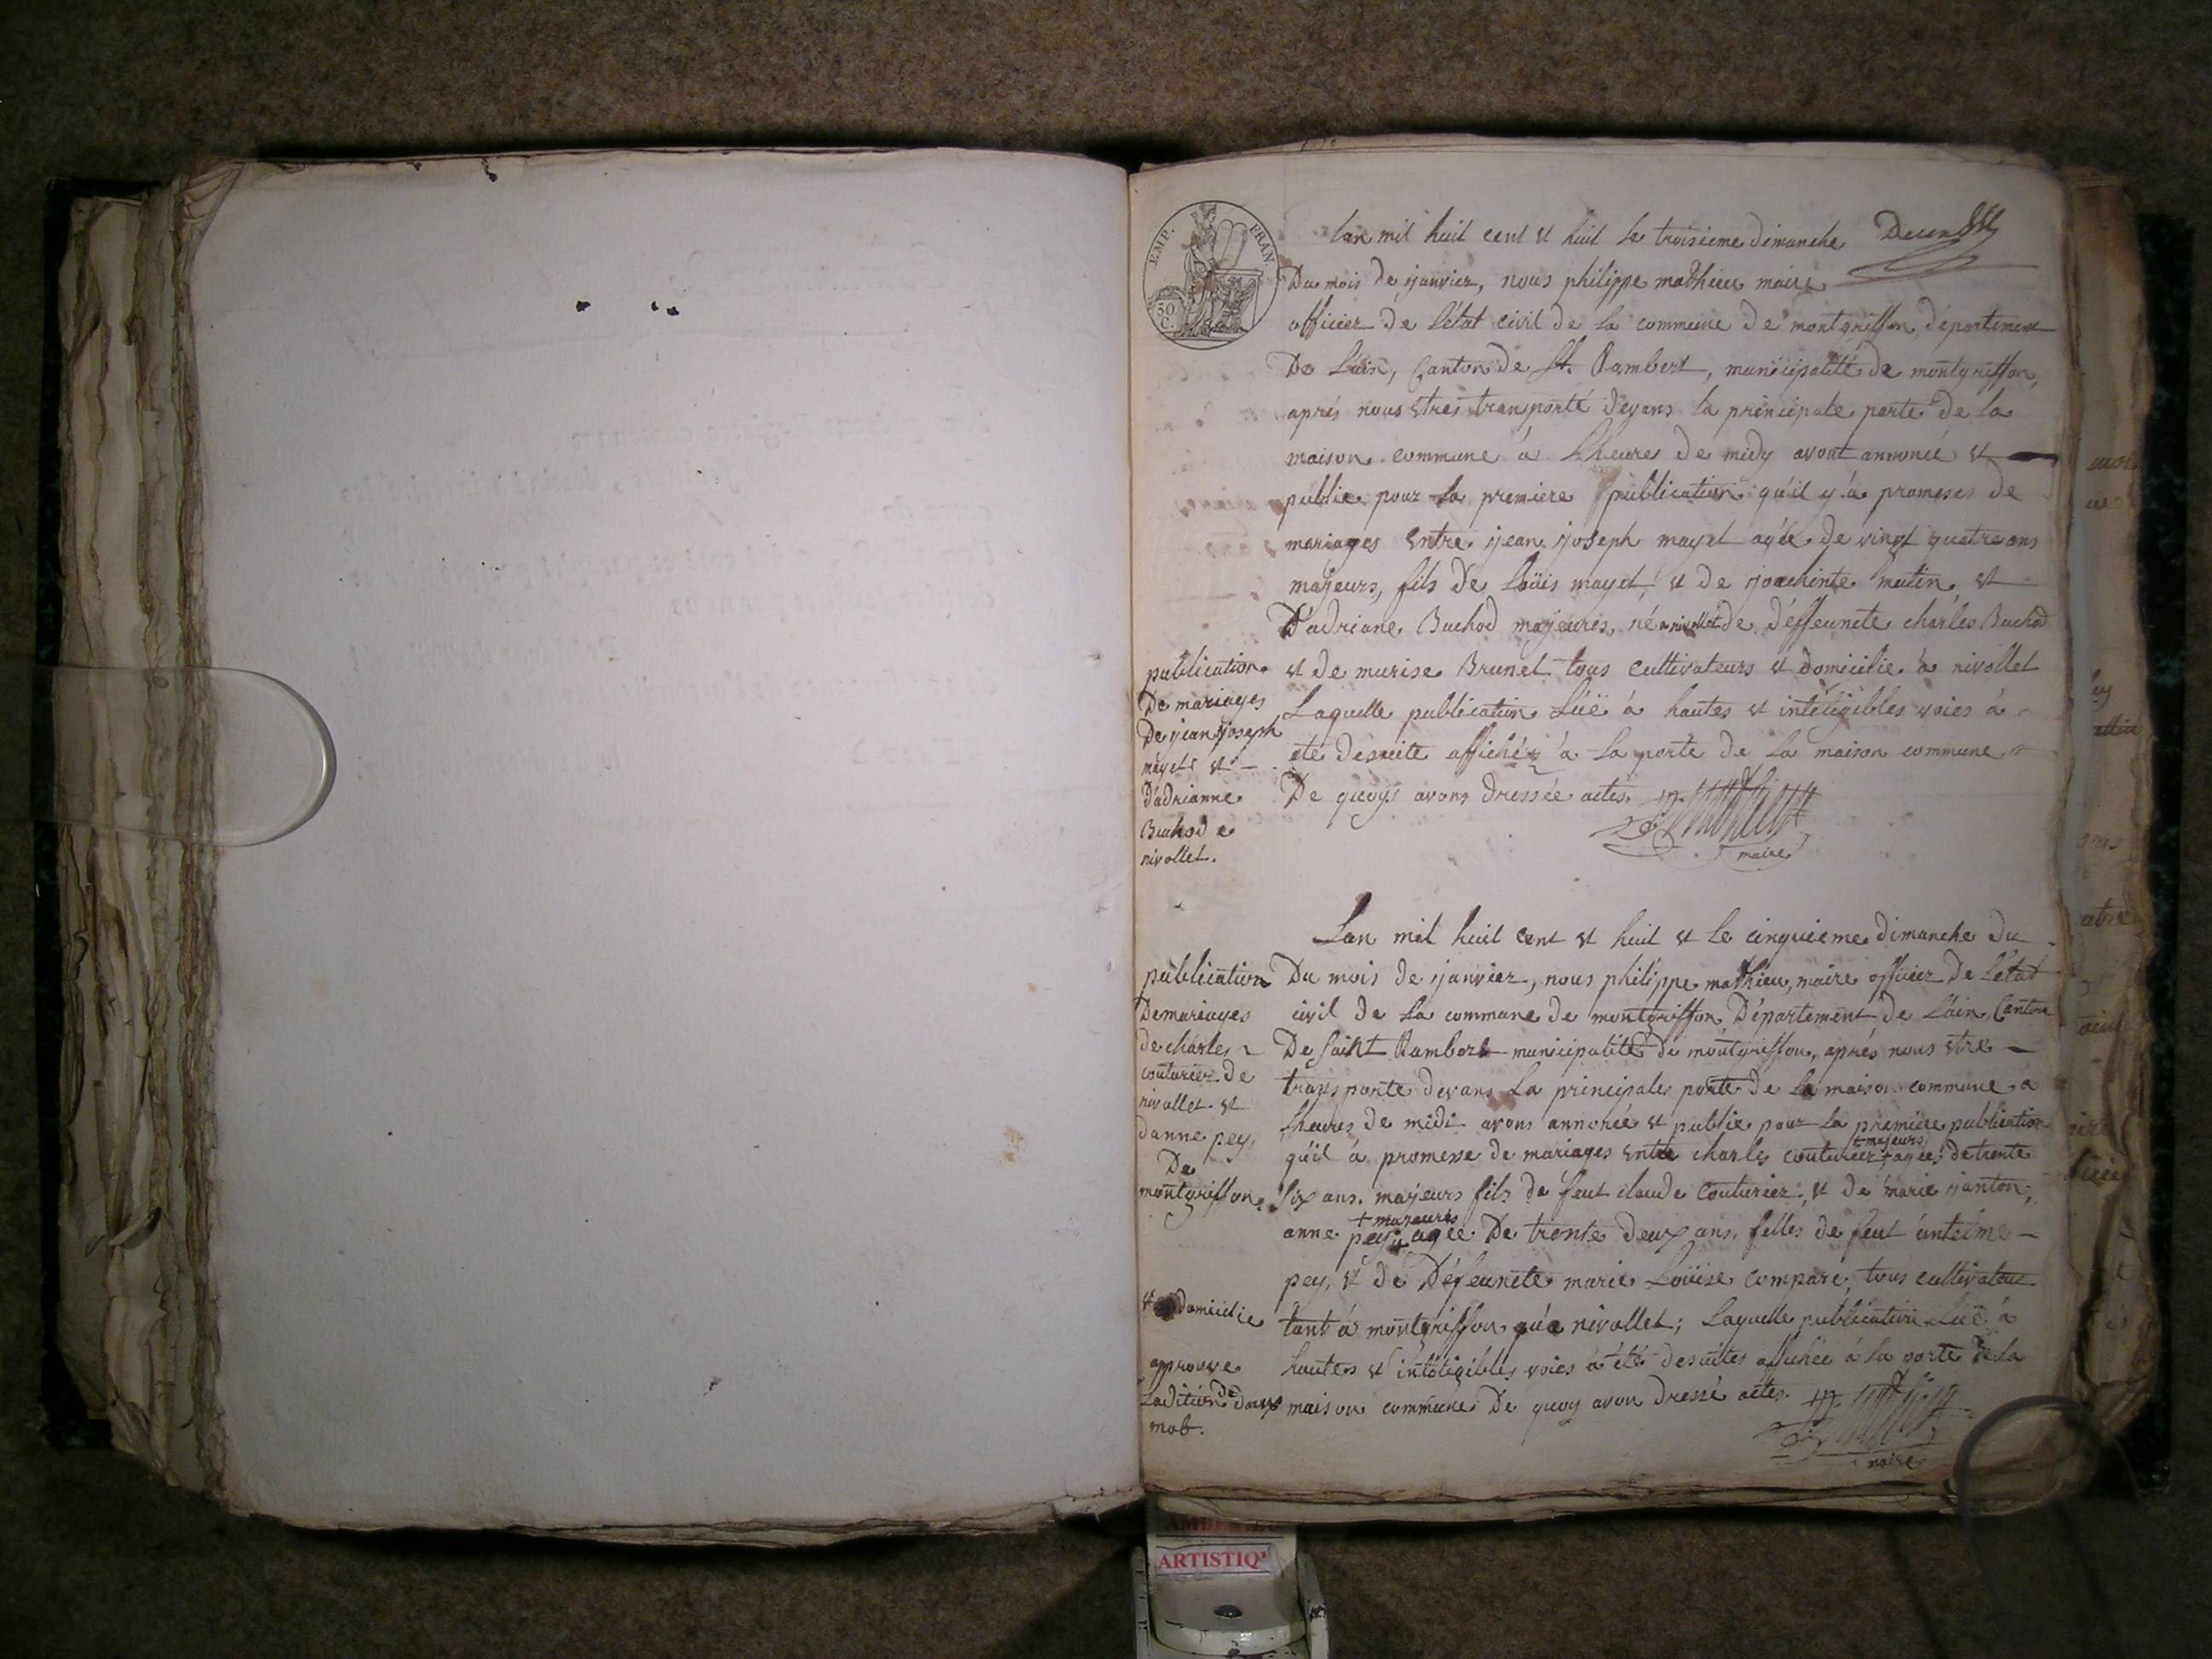 EMP. FRAN.
50
C.
lan mil huit cent et huit le troisieme dimanche
Du mois de ijanvier, nous philippe mathieu maire
officier de létat civil de la commune de montgriffon, département
De Lain, Canton de St. Rambert, municipalité de montgriffon,
aprés nous etres transporté devans la principale porte de la
maison commune à Lheures de midy avont annoncé et
publie pour la premiere publication qu'il y a promeses de
mariages entre ijean ijoseph mayet agée de vingt quatre ans
majeurs, fils de Loüis mayet, et de ijoachinte et
D'adriane Buchod majeures, né a nivollet de déffeunete charles Buchod
publication
De mariages
De ijean ijoseph
mayet et
d'adrianne
Buchod e
nivollet.
et de murise Brunet tous cultivateurs et domicilie à nivollet
Laquelle publication Lüe à hautes et intéligibles voies à
eté desuite affichéz à la porte de la maison commune
De quoys avons dressée actes.
maire
Lan mil huit cent et huit et le cinquieme dimanche du
publication
Demariages
de charles
couturier de
nivollet et
danne pey,
De
montgriffon.
Du mois de ijanvier, nous philippe mathieu, maire officier de l'état
civil de la commune de montgriffon, Département de l'ain Canton
De Saint Rambert municipalité de montgriffon, aprés nous etre
transporte devans la principales porte de la maison commune à
Lheures de midi avons annoncé et publie pour la premiere publication
+ majeurs
qu'il à promesse de mariages entre charles couturier + agée de trente
Six ans. majeurs fils de feut claude Couturier, et de marie ijanton;
+ majeures
anne pey + agée De trente deux ans, filles de feut antelme
pey, et de Déffeunete marie Loüise compare, tous cultivateur
et domicilie
tant à montgriffon qu'a nivollet; Laquelle publication Lüe à
approuve
Laditiön de deux
mot.
hautes et intéligibles voies à été desuites affichée à la porte de la
maison commune De quoy avon dressé actes.
maire
ARTISTIQ